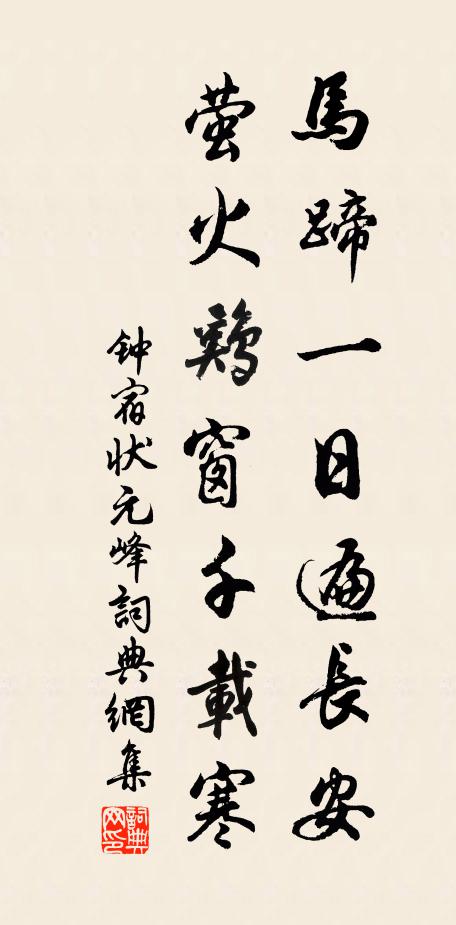 馬蹄一日遍長安
萤火鷄窗千載寒
钟宿状元峰詞典網集
詞典網印